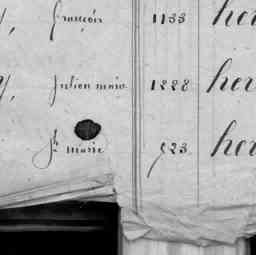 françois 1133 her
julien marie 1228 her
Jh marie 523 her